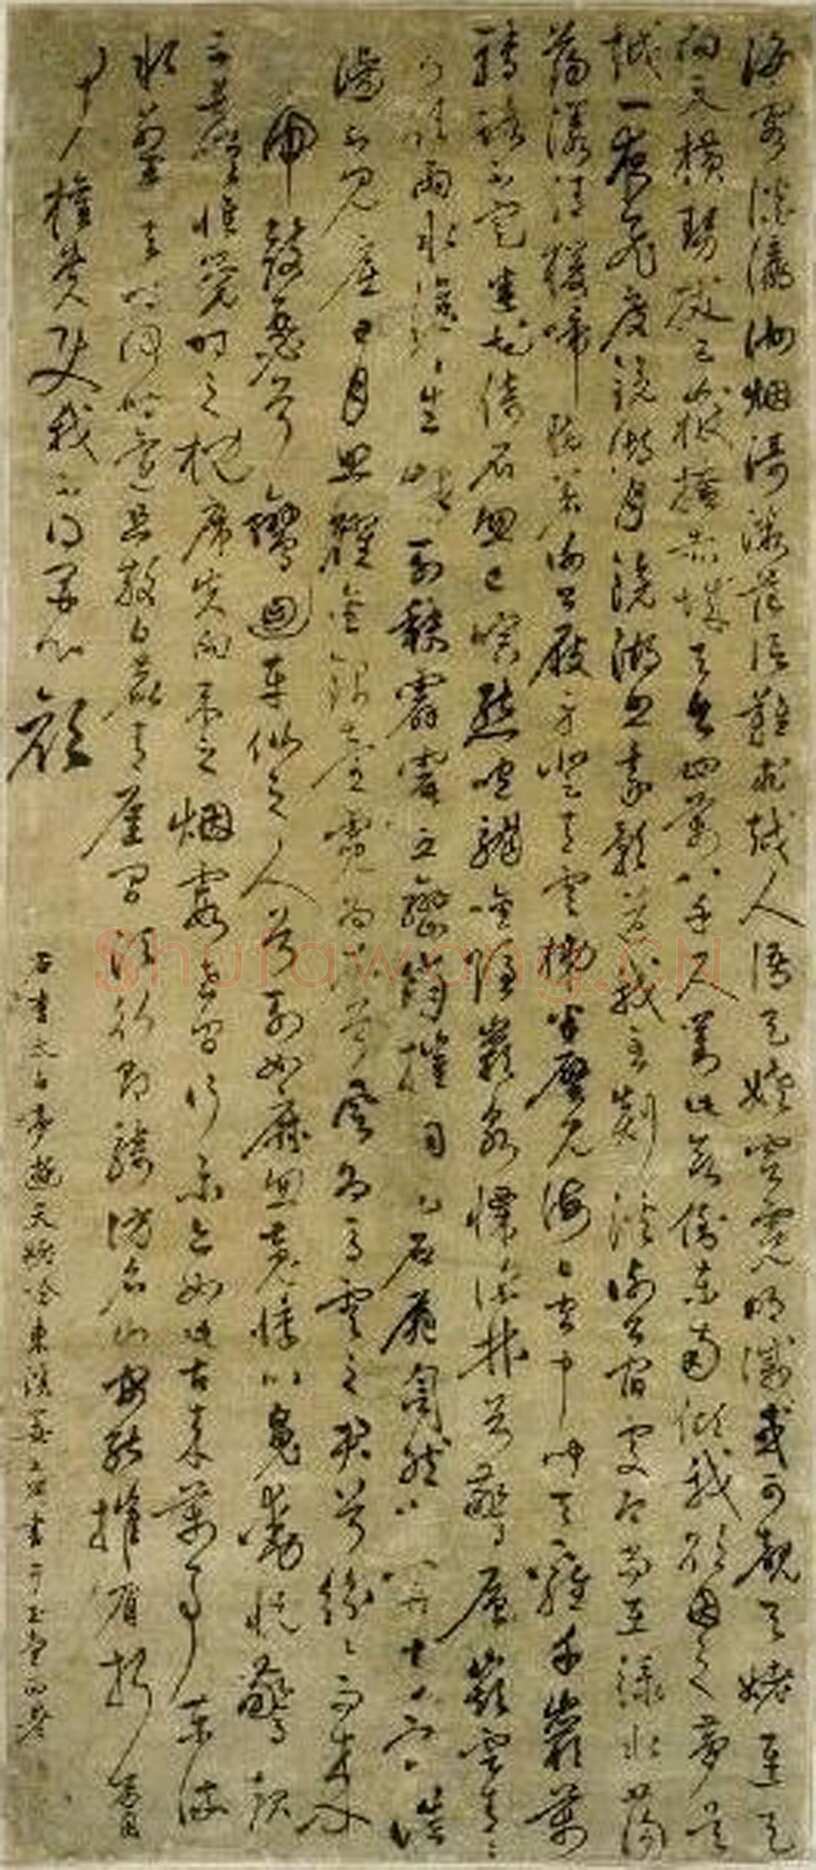 海客談瀛洲烟濤微茫信難求越人語天姥雲霓明滅或可覩天姥連天
向天橫勢拔五嶽掩赤城天台四萬八千尺對此欲倒東南傾我欲因之夢吳
越一夜飛度鏡湖月鏡湖影我至剡溪謝公宿處今尚在淥水蕩
蕩漾清猨啼腳著謝公屐身登青雲梯半壁見海日空中聞天雞千巖萬
轉路不定迷花倚石忽已暝熊咆龍吟殷巖泉慄深林兮驚層巔雲青青
兮欲雨水澹澹生烟列缺霹靂丘巒崩摧洞天石扉訇然中開青冥浩
蕩不見底日月照耀金銀臺霓為衣兮風為馬雲之君兮紛紛而來下
虎鼓瑟兮鸞回車仙之人兮列如麻忽魂悸以魄動怳驚起
而長嗟惟覺時之枕席失向來之烟霞世間行樂亦如此古來萬事東流
水別君去時何時還且放白鹿青崖間須行即騎訪名山安能摧眉折腰
事權貴使我不得開心顏
右李太白夢遊天姥吟東書于玉堂西署
shufawang.CN